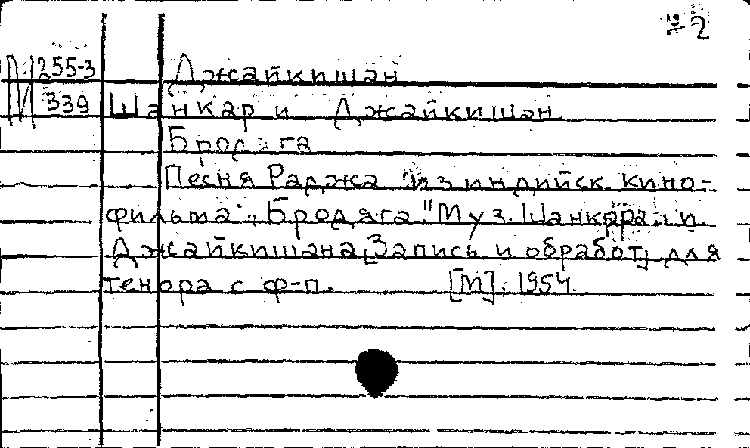 № 2
П 255-3 Джайкишан
М 339 Шанкар и Джайкишан
Бродяга
Песня Раджа из индийск. кино-
фильма "Бродяга." Муз. Шанкара и
Джайкишана. Запись и обработ. для
тенора с ф-п. [М]. 1954